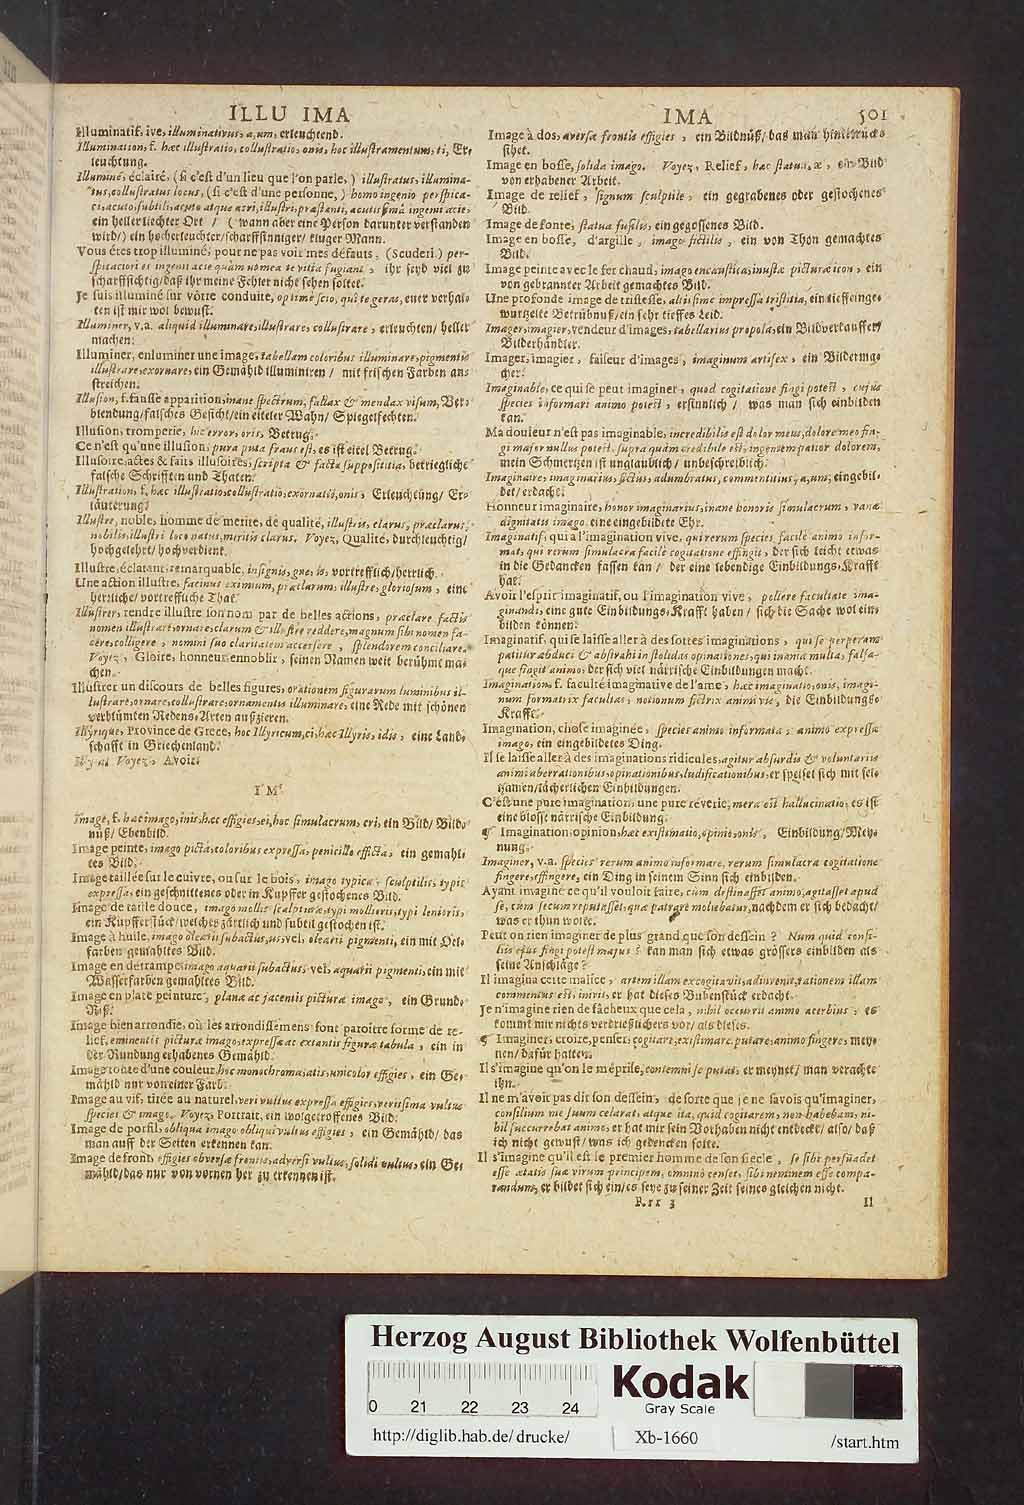 ILLU IMA
Illuminatif, ive, illuminativus, a, um, erleuchtend.
Illumination, f. hæc illustratio, collustratio, onis, hoc illustramentum, ti, Er-
leuchtung.
Illuminé, éclairé, (si c'est d'un lieu que l'on parle,) illustratus, illumina-
tus, collustratus locus, (si c'est d'une personne,) homo ingenio perspica-
ci, acuto, subtili, acuto atque acri, illustri, præstanti, acutissimâ ingenii acie,
ein hellerliechter Ort / (wann aber eine Person darunter verstanden
wird/) ein hocherleuchter/scharffsinniger/ kluger Mann.
Vous étes trop illuminé, pour ne pas voir mes défauts, (Scuderi.) per-
spicaciori es ingenii acie quàm ut mea te vitia fugiant, ihr seyd viel zu
scharffsichtig/daß ihr meine Fehler nicht sehen soltet.
Je suis illuminé sur vôtre conduite, optimè scio, quî te geras, euer verhal-
ten ist mir wol bewust.
Illuminer, v.a. aliquid illuminare, illustrare, collustrare, erleuchten/ heller
machen.
Illuminer, enluminer une image, tabellam coloribus illuminare, pigmentis
illustrare, exornare, ein Gemähld illuminiren / mit frischen Farben an-
streichen.
Illusion, f. fausse apparition, inane spectrum, fallax & mendax visum, Ver-
blendung/falsches Gesicht/ein eiteler Wahn/ Spiegelfechten.
Illusion, tromperie, hic error, oris, Betrug.
Ce n'est qu'une illusion, pura puta fraus est, es ist eitel Betrug.
Illusoire, actes & faits illusoires, scripta & facta supposititia, betriegliche
falsche Schrifften und Thaten.
Illustration, f. hæc illustratio, collustratio, exornatio, onis, Erleuchtung/ Er-
läuterung.
Illustre, noble, homme de merite, de qualité, illustris, clarus, præclarus,
nobilis, illustri loco natus, meritis clarus. Voyez, Qualité, durchleuchtig/
hochgelehrt/ hochverdient.
Illustre, éclatant, remarquable, insignis, gne, is, vortrefflich/herrlich.
Une action illustre, facinus eximium, præclarum, illustre, gloriosum, eine
herrliche/vortreffliche That.
Illustrer, rendre illustre son nom par de belles actions, præclare factis
nomen illustrare, ornare, clarum & illustre reddere, magnum sibi nomen fa-
cere, colligere, nomini suo claritatem accersere, splendorem conciliare.
Voyez, Gloire, honneur, ennoblir, seinen Namen weit berühmt ma-
chen.
Illustrer un discours de belles figures, orationem figurarum luminibus il-
lustrare, ornare, collustrare, ornamentis illuminare, eine Rede mit schönen
verblümten Redens-Arten außzieren.
Illyrique, Province de Grece, hoc Illyricum, ci, hæc Illyris, idis, eine Land-
schafft in Griechenland.
Il y at Voyez, Avoir.
IM
Image, f. hæc imago, inis, hæc effigies, ei, hoc simulacrum, cri, ein Bild/ Bild-
nüß/ Ebenbild.
Image peinte, imago picta, coloribus expressa, penicillo efficta, ein gemahl-
tes Bild.
Image taillée sur le cuivre, ou sur le bois, imago typica, sculptilis, typis
expressa, ein geschnittenes oder in Kupffer gestochenes Bild.
Image de taille douce, imago mollis scalpturæ, typi mollioris, typi lenioris,
ein Kupfferstück/welches zärtlich und subtil gestochen ist.
Image à huile, imago olearii subactus, us, vel, olearii pigmenti, ein mit Oel-
farben gemahltes Bild.
Image en détrampe, imago aquarii subactus, vel, aquarii pigmenti, ein mit
Wasserfarben gemahltes Bild.
Image en plate peinture, plana ac jacentis picturæ imago, ein Grund-
Riß.
Image bien arrondie, où les arrondissemens font paroître forme de re-
lief, eminentis picturæ imago, expressæ ac extantis figuræ tabula, ein in
der Rundung erhabenes Gemähld.
Image toute d'une couleur, hoc monochroma, atis, unicolor effigies, ein Ge-
mähld nur von einer Farb.
Image au vif, tirée au naturel, veri vultus expressa effigies, verissima vultus
species & imago. Voyez, Portrait, ein wolgetroffenes Bild.
Image de porfil, obliqua imago, obliqui vultus effigies, ein Gemähld/ das
man auff der Seiten erkennen kan.
Image de front, effigies obversæ frontis, adversi vultus, solidi vultus, ein Ge-
mähld/das nur von vornen her zu erkennen ist.
IMA 501
Image à dos, aversæ frontis effigies, ein Bildnüß/das man hinderrucks
sihet.
Image en bosse, solida imago. Voyez, Relief, hæc statua, æ, ein Bild
von erhabener Arbeit.
Image de relief, signum sculptile, ein gegrabenes oder gestochenes
Bild.
Image de fonte, statua fusilis, ein gegossenes Bild.
Image en bosse, d'argille, imago fictilis, ein von Thon gemachtes
Bild.
Image peinte avec le fer chaud, imago encaustica, inustæ picturæ icon, ein
von gebrannter Arbeit gemachtes Bild.
Une profonde image de tristesse, altissimè impressa tristitia, ein tieffeinge-
wurtzelte Betrübnuß/ein sehr tieffes Leid.
Imager, imagier, vendeur d'images, tabellarius propola, ein Bildverkauffer/
Bilderhändler.
Imager, imagier, faiseur d'images, imaginum artifex, ein Bilderma-
cher.
Imaginable, ce qui se peut imaginer, quod cogitatione fingi potest, cujus
species informari animo potest, ersinnlich / was man sich einbilden
kan.
Ma douleur n'est pas imaginable, incredibilis est dolor meus, dolore meo fin-
gi major nullus potest, supra quàm credibile est, ingentem patior dolorem,
mein Schmertzen ist unglaublich/ unbeschreiblich.
Imaginaire, imaginarius, fictus, adumbratus, commentitius, a, um, eingebil-
det/erdacht.
Honneur imaginaire, honor imaginarius, inane honoris simulacrum, vanæ
dignitatis imago, eine eingebildete Ehr.
Imaginatif, qui a l'imagination vive, qui rerum species facilè animo infor-
mat, qui rerum simulacra facilè cogitatione effingit, der sich leicht etwas
in die Gedancken fassen kan/ der eine lebendige Einbildungs-Krafft
hat.
Avoir l'esprit imaginatif, ou l'imagination vive, pollere facultate ima-
ginandi, eine gute Einbildungs-Krafft haben/ sich die Sache wol ein-
bilden können.
Imaginatif, qui se laisse aller à des sottes imaginations, qui se perperàm
patitur abduci & abstrahi in stolidas opinationes, qui inania multa, falsa-
que fingit animo, der sich viel närrische Einbildungen macht.
Imagination, f. faculté imaginative de l'ame, hæc imaginatio, onis, imagi-
num formatrix facultas, notionum fictrix animi vis, die Einbildungs-
Krafft.
Imagination, chose imaginée, species animo informata, animo expressa
imago, ein eingebildetes Ding.
Il se laisse aller à des imaginations ridicules, agitur absurdis & voluntariis
animi aberrationibus, opinationibus, ludificationibus, er speiset sich mit sel-
tzamen/lächerlichen Einbildungen.
C'est une pure imagination, une pure réverie, mera est hallucinatio, es ist
eine blosse närrische Einbildung.
¶ Imagination, opinion, hæc existimatio, opinio, onis, Einbildung/Mey-
nung.
Imaginer, v.a. species rerum animo informare, rerum simulacra cogitatione
fingere, effingere, ein Ding in seinem Sinn sich einbilden.
Ayant imaginé ce qu'il vouloit faire, cùm destinasset animo, agitasset apud
se, cùm secum reputasset, quæ patrare moliebatur, nachdem er sich bedacht/
was er thun wolte.
Peut on rien imaginer de plus grand que son dessein? Num quid consi-
liis ejus fingi potest majus? kan man sich etwas grössers einbilden als
seine Anschläge?
Il imagina cette malice, artem illam excogitavit, adinvenit, rationem illam
commentus est, iniit, er hat dieses Bubenstück erdacht.
Je n'imagine rien de fâcheux que cela, nihil occurrit animo acerbius, es
kommt mir nichts verdrießlichers vor/ als dieses.
¶ Imaginer, croire, penser, cogitare, existimare, putare, animo fingere, mey-
nen/ dafür halten.
Il s'imagine qu'on le méprise, contemni se putat, er meynet/ man verachte
ihn.
Il ne m'avoit pas dit son dessein, de sorte que je ne savois qu'imaginer,
consilium me suum celarat, atque ita, quid cogitarem, non habebam, ni-
hil succurrebat animo, er hat mir sein Vorhaben nicht entdeckt/ also/ daß
ich nicht gewust/was ich gedencken solte.
Il s'imagine qu'il est le premier homme de son siecle, se sibi persuadet
esse ætatis suæ virum principem, omninò censet, sibi neminem esse compa-
randum, er bildet sich ein/es seye zu seiner Zeit seines gleichen nicht.
Rrr 3 Il
Herzog August Bibliothek Wolfenbüttel
0 21 22 23 24
Kodak
Gray Scale
http://diglib.hab.de/drucke/
Xb-1660
/start.htm